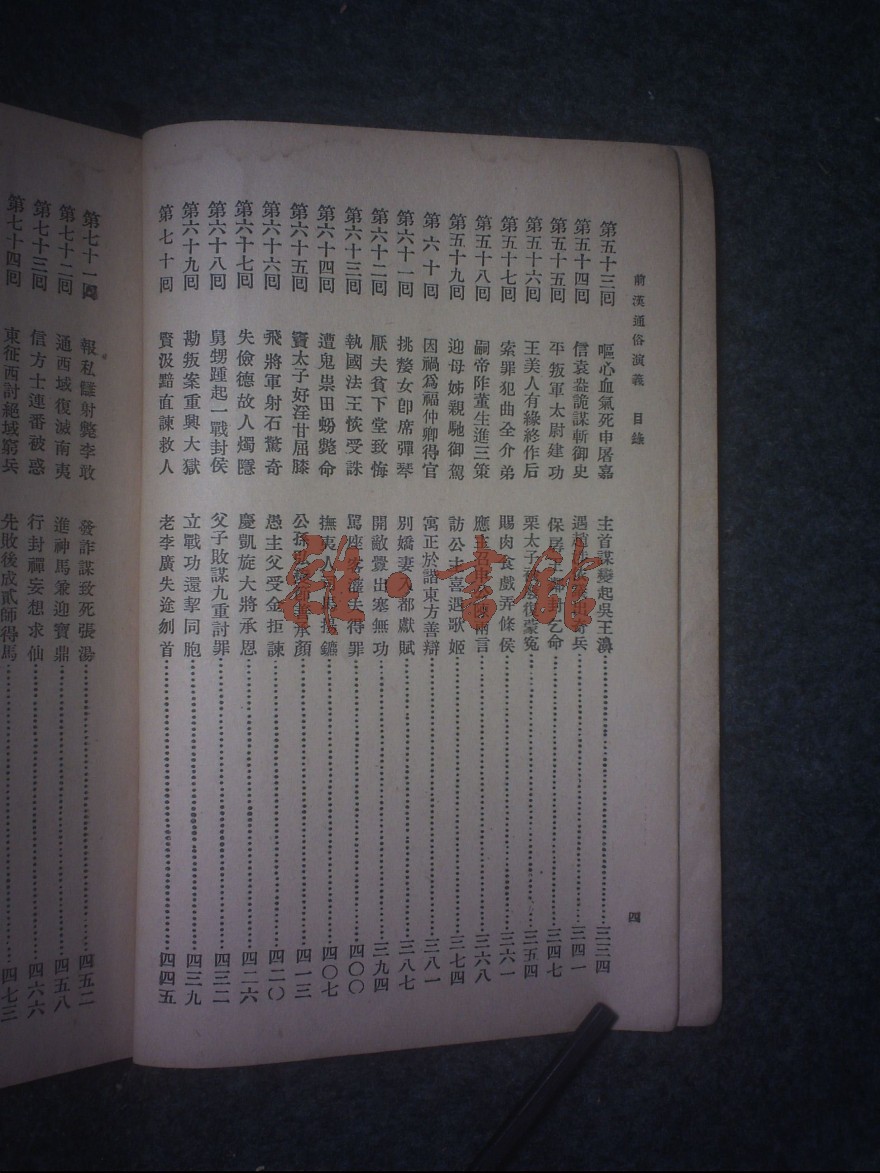 前漢通俗演義 目錄
四
第五十三囘 嘔心血氣死申屠嘉 主首謀變起吳王濞 三三四
第五十四囘 信袁盎詭謀斬御史 遇趙 兵 三四一
第五十五囘 平叛軍太尉建功 保孱王 乞命 三四七
第五十六囘 王美人有緣終作后 栗太子 復蒙冤 三五四
第五十七囘 索罪犯曲全介弟 賜肉食戲弄條侯 三六一
第五十八囘 嗣帝阼董生進三策 應主召申公 兩言 三六八
第五十九囘 迎母姊親馳御駕 訪公主喜遇歌姬 三七四
第六十囘 因禍爲福仲卿得官 寓正於諧東方善辯 三八一
第六十一囘 挑嫠女卽席彈琴 別嬌妻入都獻賦 三八七
第六十二囘 厭夫貧下堂致悔 開敵釁出塞無功 三九四
第六十三囘 執國法王恢受誅 駡座客灌夫得罪 四〇〇
第六十四囘 遭鬼祟田蚡斃命 撫夷人司馬揚鑣 四〇七
第六十五囘 竇太子好淫甘屈膝 公孫弘 承顏 四一三
第六十六囘 飛將軍射石驚奇 愚主父受金拒諫 四二〇
第六十七囘 失儉德故人燭隱 慶凱旋大將承恩 四二六
第六十八囘 舅甥踵起一戰封侯 父子敗謀九重討罪 四三二
第六十九囘 勘叛案重興大獄 立戰功還挈同胞 四三九
第七十囘 賢汲黯直諫救人 老李廣失途刎首 四四五
第七十一囘 報私讎射斃李敢 發詐謀致死張湯 四五二
第七十二囘 通西域復滅南夷 進神馬兼迎寶鼎 四五八
第七十三囘 信方士連番被惑 行封禪妄想求仙 四六六
第七十四囘 東征西討絕域窮兵 先敗後成貳師得馬 四七三
雜·書館